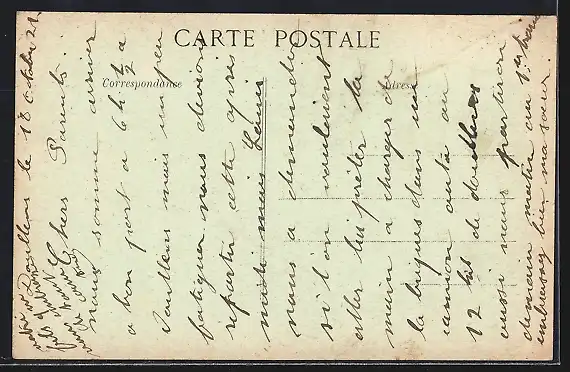 CARTE POSTALE
Correspondance
Adresse
le 18 Octobre 21
Chers Parents.
nous somme arriver
a bon port a 6h ½ a
mais un peu
fatiguer nous devions
repartir cette apres
midi mais
nous a demander
si l'on voulevait
aller lui prêter la
main a charger de
la briques dans un
camion auto au
12 de
aussi nous partiron
demain matin au 1er train
embrassez bien ma sœur.